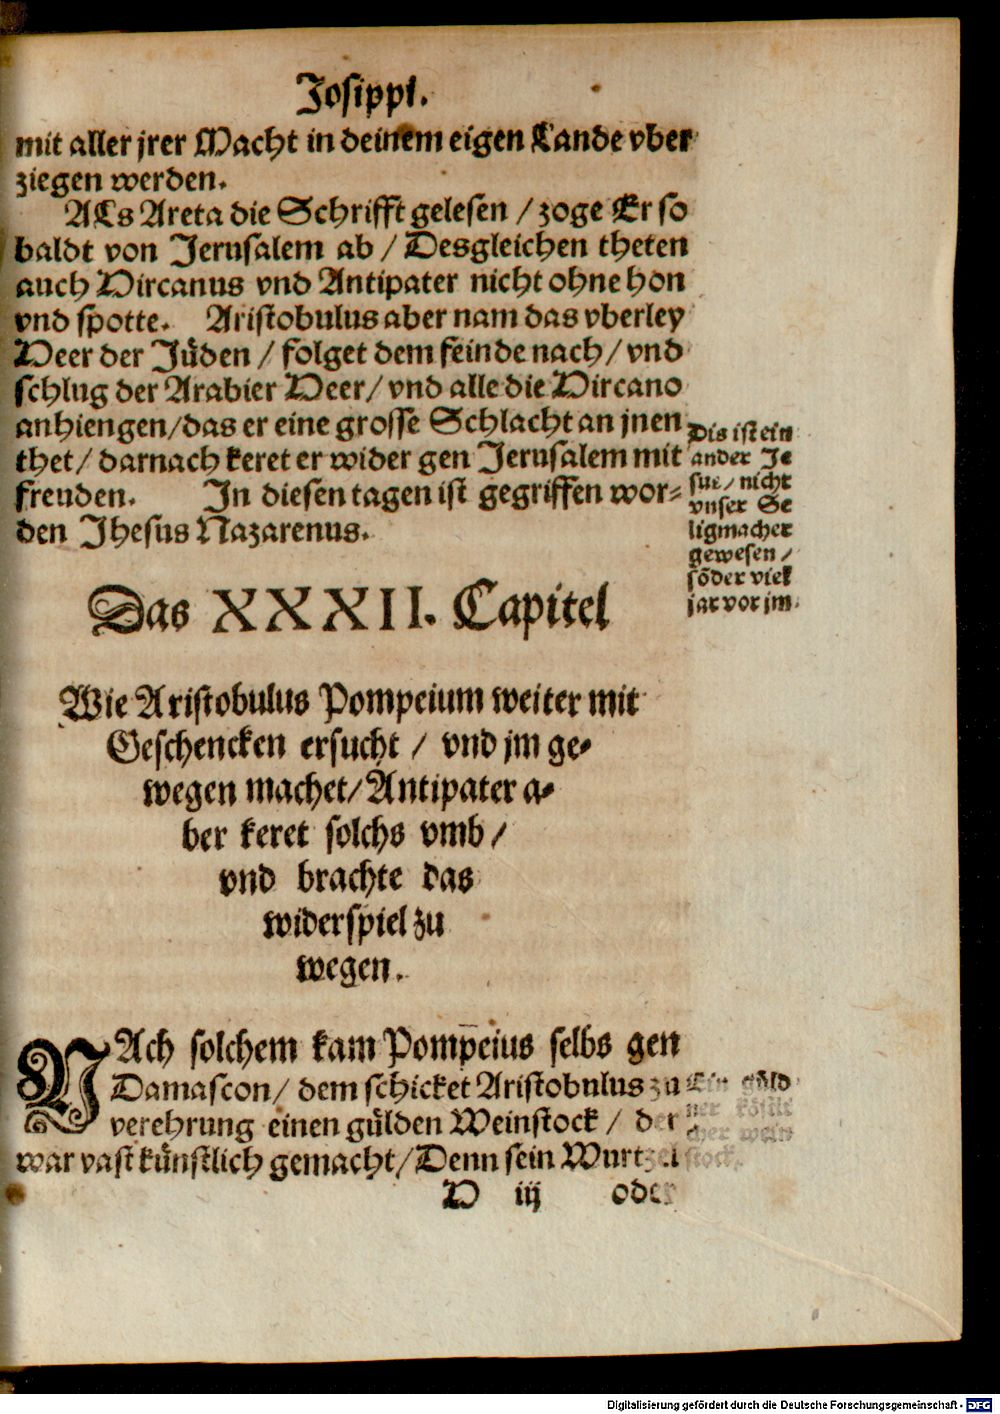 Josippi.
mit aller jrer Macht in deinem eigen Lande vber
ziegen werden.
ALs Areta die Schrifft gelesen / zoge Er so
baldt von Jerusalem ab / Desgleichen theten
auch Hircanus vnd Antipater nicht ohne hon
vnd spotte. Aristobulus aber nam das vberley
Heer der Jüden / folget dem feinde nach / vnd
schlug der Arabier Heer / vnd alle die Hircano
anhiengen / das er eine grosse Schlacht an jnen
thet / darnach keret er wider gen Jerusalem mit
freuden. In diesen tagen ist gegriffen wor-
den Jhesus Nazarenus.
Dis ist ein
ander Je
sus / nicht
vnser Se
ligmacher
gewesen /
sõder viel
jar vor jm.
Das XXXII. Capitel
Wie Aristobulus Pompeium weiter mit
Geschencken ersucht / vnd jm ge-
wegen machet / Antipater a-
ber keret solchs vmb /
vnd brachte das
widerspiel zu
wegen.
NAch solchem kam Pompeius selbs gen
Damascon / dem schicket Aristobulus zu
verehrung einen gülden Weinstock / der
war vast künstlich gemacht / Denn sein Wurtzel
Ein güld
ner köstli
cher wein
stock.
H iij oder
Digitalisierung gefördert durch die Deutsche Forschungsgemeinschaft - DFG